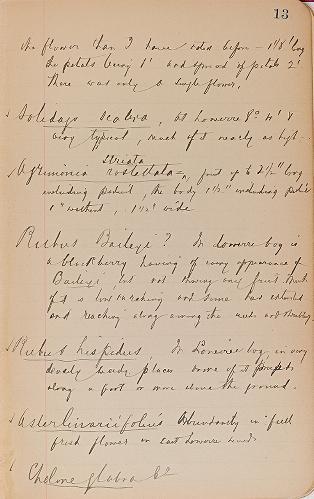 13
the flower than I have noted before - 1 1/8' long
the petals being 1' and spread of petals 2'
There was only a single flower.
Solidago scabra, at 8° 4' 8
very typical, much of it nearly as high
striata
Agrimonia rostellata =, fruit up to 2 1/2" long
including pedicel, the body 1 1/2" including
1" without, 1 1/2' wide
Rubus Baileyi? In bog is
a blackberry having appearance of
Baileyi, but not having any fruit. Much
of it is low arching and some has extended
and reaching along among the weeds and
Rubus hispidus, In bog in very
shady places some of it
along a foot or more above the ground.
Aster linariifolius Abundantly in full
fresh flower in east woods
Chelone glabra